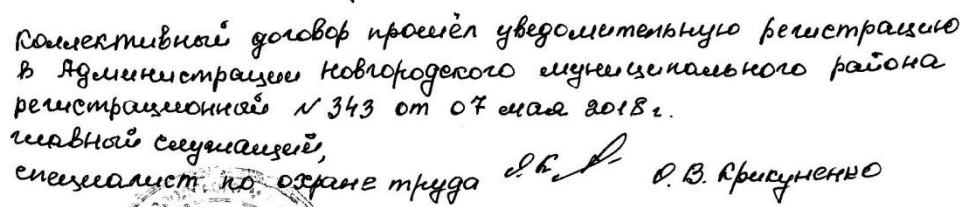 Коллективный договор прошёл уведомительную регистрацию
в Администрации Новгородского муниципального района
регистрационный № 343 от 07 мая 2018 г.
главный служащий,
специалист по охране труда О.В. Крикуненко